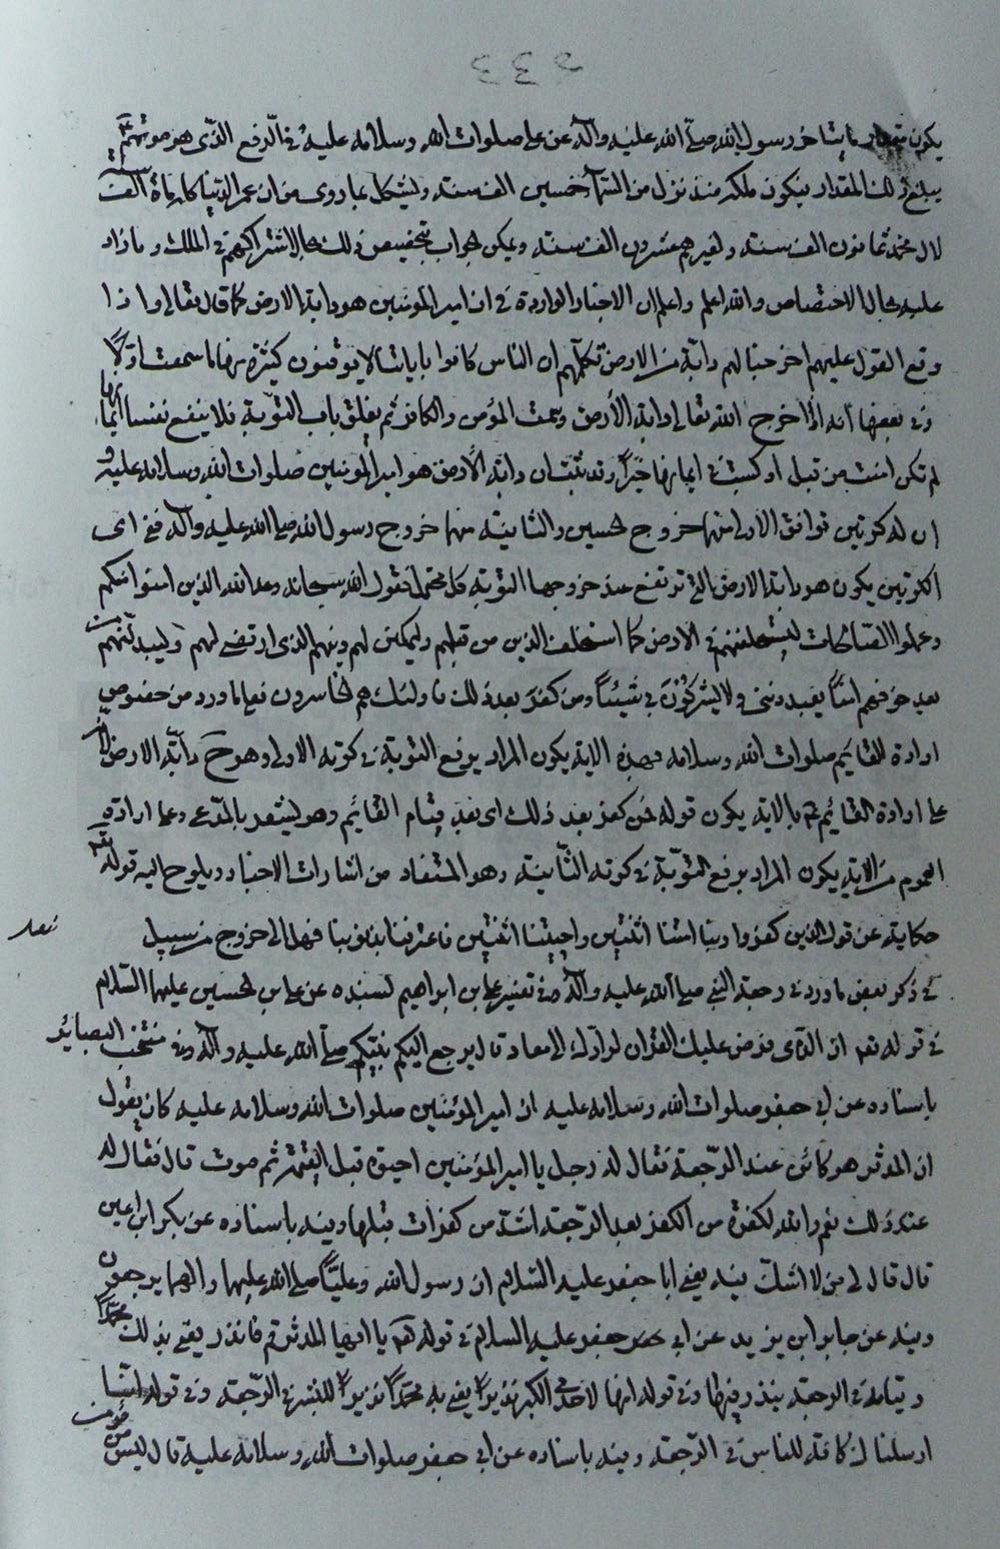 ٥٤٤
يكون بمقدار ما يتأخر رسول الله صلى الله عليه وآله عن علي صلوات الله وسلامه عليه في الرفع الذي هو موتهم ع
يبلغ ذلك المقدار فيكون ملكه منذ نزل من السماء خمسين الف سنة ويشكل بما روي من ان عمر الدنيا كله مائة الف سنة
لال محمد ثمانون الف سنة ولغيرهم عشرون الف سنة ويمكن الجواب بتخصيص ذلك بحال اشتراكهم في الملك وما زاد
عليه بحال الاختصاص والله اعلم واعلم ان الاخبار الواردة في ان امير المؤمنين هو دابة الارض كما قال تعالى واذا
وقع القول عليهم اخرجنا لهم دابة من الارض تكلمهم ان الناس كانوا بآياتنا لا يوقنون كثيرة منها ما سمعت اولا
وفي بعضها انه اذا اخرج الله تعالى دابة الأرض وسمت المؤمن والكافر ثم يغلق باب التوبة فلا ينفع نفسا ايمانها
لم تكن امنت من قبل او كسبت في ايمانها خيرا وقد ثبت ان دابة الأرض هو امير المؤمنين صلوات الله وسلامه عليه و
ان له كرتين توافق الاولى منها خروج الحسين والثانية منها خروج رسول الله صلى الله عليه وآله ففي اي
الكرتين يكون هو دابة الارض التي ترتفع عند خروجها التوبة كل محتمل لقول الله سبحانه وعد الله الذين امنوا منكم
وعملوا الصالحات ليستخلفنهم في الارض كما استخلف الذين من قبلهم وليمكنن لهم دينهم الذي ارتضى لهم وليبدلنهم من
بعد خوفهم امنا يعبدونني ولا يشركون بي شيئا ومن كفر بعد ذلك فاولئك هم الخاسرون فعلى ما ورد من خصوص
ارادة القائم صلوات الله وسلامه بهذه الاية يكون المراد برفع التوبة في كرته الاولى وهو ح دابة الارض
على ارادة القائم ع بالاية يكون قوله فمن كفر بعد ذلك اى بعد قيام القائم وهو ليشعر بالمدعى وعلى ارادة
العموم من الاية يكون المراد برفع التوبة في كرته الثانية وهو المستفاد من اشارات الاخبار ويلوح اليه قوله تع
حكاية عن قول الذين كفروا ربنا امتنا اثنتين واحييتنا اثنتين فاعترفنا بذنوبنا فهل الى خروج من سبيل
في ذكر بعض ما ورد في رجعة النبي صلى الله عليه وآله في تفسير علي بن ابراهيم بسنده عن علي بن الحسين عليهما السلام
في قوله تعم ان الذي فرض عليك القران لرادك الى معاد قال يرجع اليكم نبيكم صلى الله عليه وآله وفي منتخب البصائر
باسناده عن ابي جعفر صلوات الله وسلامه عليه ان امير المؤمنين صلوات الله وسلامه عليه كان يقول
ان المدثر هو كائن عند الرجعة فقال له رجل يا امير المؤمنين احيوة قبل القيمة ثم موت قال فقال له
عند ذلك نعم والله لكفرة من الكفر بعد الرجعة اشد من كفرات قبلها وفيه باسناده عن بكر ابن اعين
قال قال لي من لا اشك فيه يعني ابا جعفر عليه السلام ان رسول الله وعليا صلى الله عليهما والهما يرجعون
وفيه عن جابر ابن يزيد عن ابي جعفر عليه السلام في قوله تعم يا ايها المدثر قم فانذر يعني بذلك محمدا
وقيامه في الرجعة ينذر فيها وفي قوله انها لاحدى الكبر نذيرا يعني به محمدا نذيرا للبشر في الرجعة وفي قوله انا
ارسلناك كافة للناس في الرجعة وفيه باسناده عن ابي جعفر صلوات الله وسلامه عليه قال ليس من مؤمن